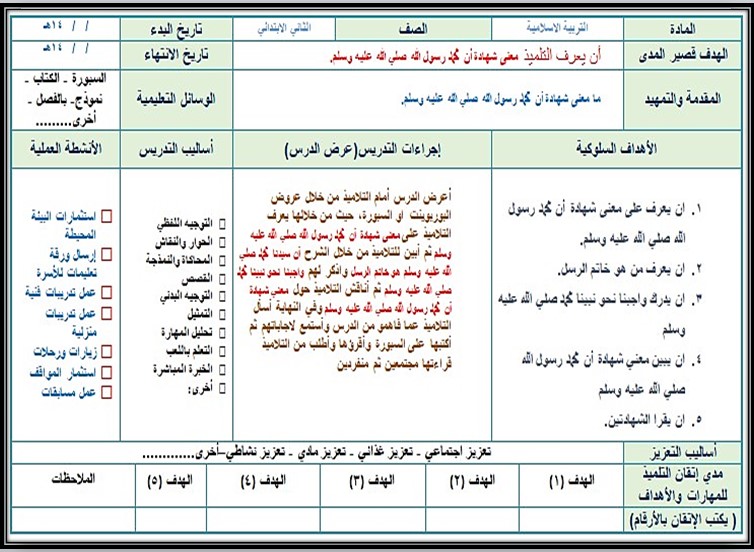 المادة التربية الاسلامية الصف الثاني الابتدائي تاريخ البدء / / ١٤هـ
الهدف قصير المدى أن يعرف التلميذ معنى شهادة أن محمد رسول الله صلي الله عليه وسلم. تاريخ الانتهاء / / ١٤هـ
المقدمة والتمهيد ما معنى شهادة أن محمد رسول الله صلي الله عليه وسلم. الوسائل التعليمية
السبورة - الكتاب -
نموذج- بالفصل -
أخرى..........
الأهداف السلوكية إجراءات التدريس(عرض الدرس) أساليب التدريس الأنشطة العملية
١. ان يعرف على معنى شهادة أن محمد رسول
الله صلي الله عليه وسلم.
٢. ان يعرف من هو خاتم الرسل.
٣. ان يدرك واجبنا نحو نبينا محمد صلي الله عليه
وسلم
٤. ان يبين معني شهادة أن محمد رسول الله
صلي الله عليه وسلم
٥. ان يقرا الشهادتين.
أعرض الدرس أمام التلاميذ من خلال عروض
البوربوينت او السبورة، حيث من خلالها يعرف
التلاميذ على معني شهادة أن محمد رسول الله صلي الله عليه
وسلم ثم أبين للتلاميذ من خلال الشرح أن سيدنا محمد صلي
الله عليه وسلم هو خاتم الرسل واذكر لهم واجبنا نحو نبينا محمد
صلي الله عليه وسلم ثم أناقش التلاميذ حول معني شهادة
أن محمد رسول الله صلي الله عليه وسلم وفي النهاية أسأل
التلاميذ عما فاهمو من الدرس وأستمع لاجاباتهم ثم
أكتبها على السبورة وأقرؤها وأطلب من التلاميذ
قراءتها مجتمعين ثم منفردين
التوجيه اللفظي
الحوار والنقاش
المحاكاة والنمذجة
القصص
التوجيه البدني
التمثيل
تحليل المهارة
التعلم باللعب
الخبرة المباشرة
أخرى:
استثمارات البيئة
المحيطة
إرسال ورقة
تعليمات للأسرة
عمل تدريبات فنية
عمل تدريبات
منزلية
زيارات ورحلات
استثمار المواقف
عمل مسابقات
أساليب التعزيز تعزيز اجتماعي - تعزيز غذائي - تعزيز مادي - تعزيز نشاطي–أخرى.............
مدي إتقان التلميذ
للمهارات والأهداف
الهدف (١) الهدف (٢) الهدف (٣) الهدف (٤) الهدف (٥) الملاحظات
( يكتب الإتقان بالأرقام)